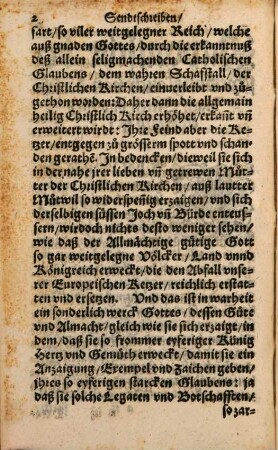 2 Sendtschreiben/
sart/so viler weitgelegner Reich/welche
auß gnaden Gottes/durch die erkanntnuß
deß allein seligmachenden Catholischen
Glaubens/dem wahren Schafstall/der
Christlichen Kirchen/einuerleibt vnd zů-
gethon worden: Daher dann die allgemain
heilig Christlich Kirch erhöhet/erkañt vñ
erweitert wirdt: Ihre Feind aber die Ke-
tzer/entgegen zů grösserm spott vnd schan-
den gerathē. In bedencken/dieweil sie sich
in der nahe jrer lieben vñ getrewen Můt-
ter der Christlichen Kirchen/auß lautter
Můtwil so widerspenig erzaigen/vnd sich
derselbigen süssen Joch vñ Bürde enteus-
sern/wirdoch nichts desto weniger sehen/
wie daß der Allmächtige gütige Gott
so gar weitgelegne Völcker/Land vnnd
Königreich erweckt/die den Abfall vnse-
rer Europeischen Ketzer/reichlich erstat-
ten vnd ersetzen. Vnd das ist in warheit
ein sonderlich werck Gottes/dessen Güte
vnd Almacht/gleich wie sie sich erzaigt/in
dem/daß sie so frommer eyferiger Künig
Hertz vnd Gemüth erweckt/damit sie ein
Anzaigung/Exempel vnd zaichen geben/
jhres so eyferigen starcken Glaubens: ja
daß sie solche Legaten vnd Botschafften/
so zar-